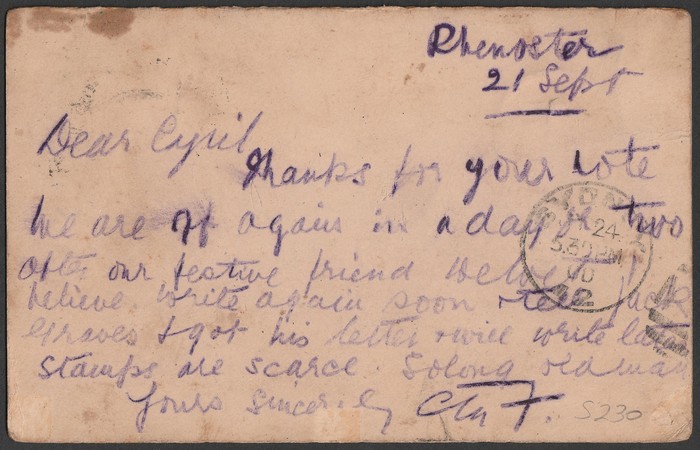 Rhenoster
21 Sept
Dear Cyril
Thanks for your note
We are off again in a day or two
after our festive friend De Wet I
believe. Write again soon & tell Jack
Graves I got his letter & will write later
Stamps are scarce. So long old man
Yours Sincerely
S230
SYDNEY
24
5.30 PM
00
12